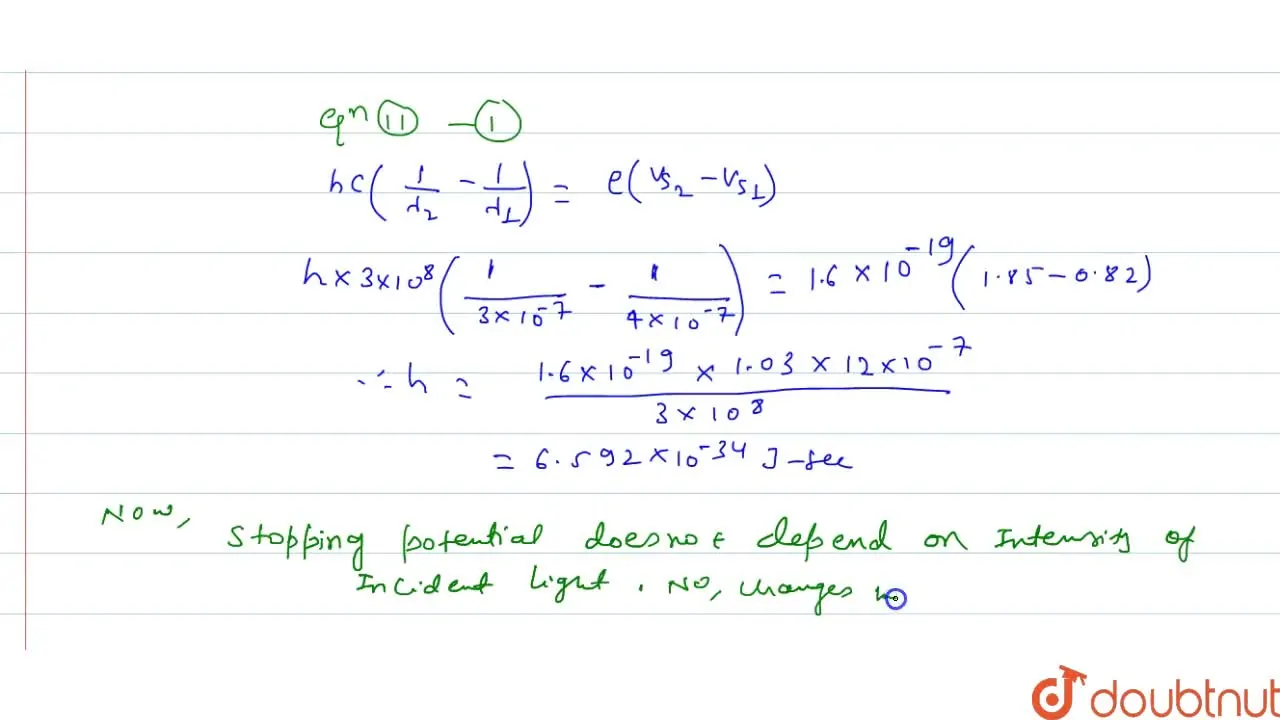 eqn (11) - (1)
hc(1/λ2 - 1/λ1) = e(Vs2 - Vs1)
h × 3×10^8 (1/(3×10^-7) - 1/(4×10^-7)) = 1.6 × 10^-19 (1.85 - 0.82)
∴ h = (1.6×10^-19 × 1.03 × 12×10^-7)/(3×10^8)
= 6.592×10^-34 J-sec
Now,
Stopping potential does not depend on Intensity of
Incident light. No, changes
doubtnut